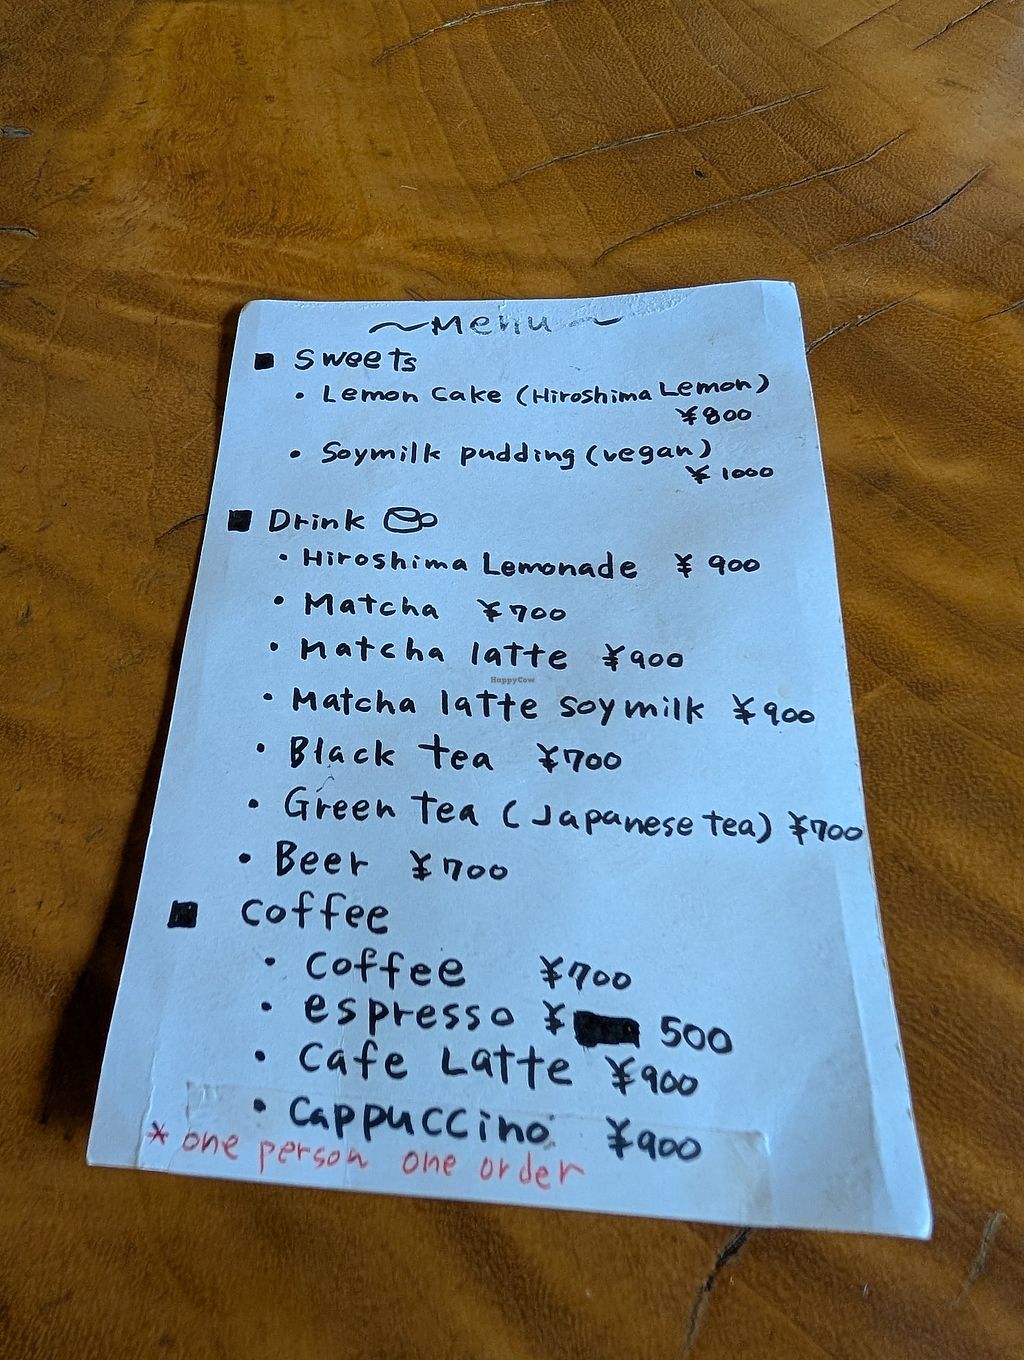 ~Menu~
■ Sweets
• Lemon Cake (Hiroshima Lemon)
¥800
• Soymilk pudding (vegan)
¥1000
■ Drink
• Hiroshima Lemonade ¥900
• Matcha ¥700
• Matcha latte ¥900
HappyCow
• Matcha latte soymilk ¥900
• Black tea ¥700
• Green tea (Japanese tea) ¥700
• Beer ¥700
■ coffee
• coffee ¥700
• espresso ¥ 500
• cafe Latte ¥900
• cappuccino ¥900
* one person one order